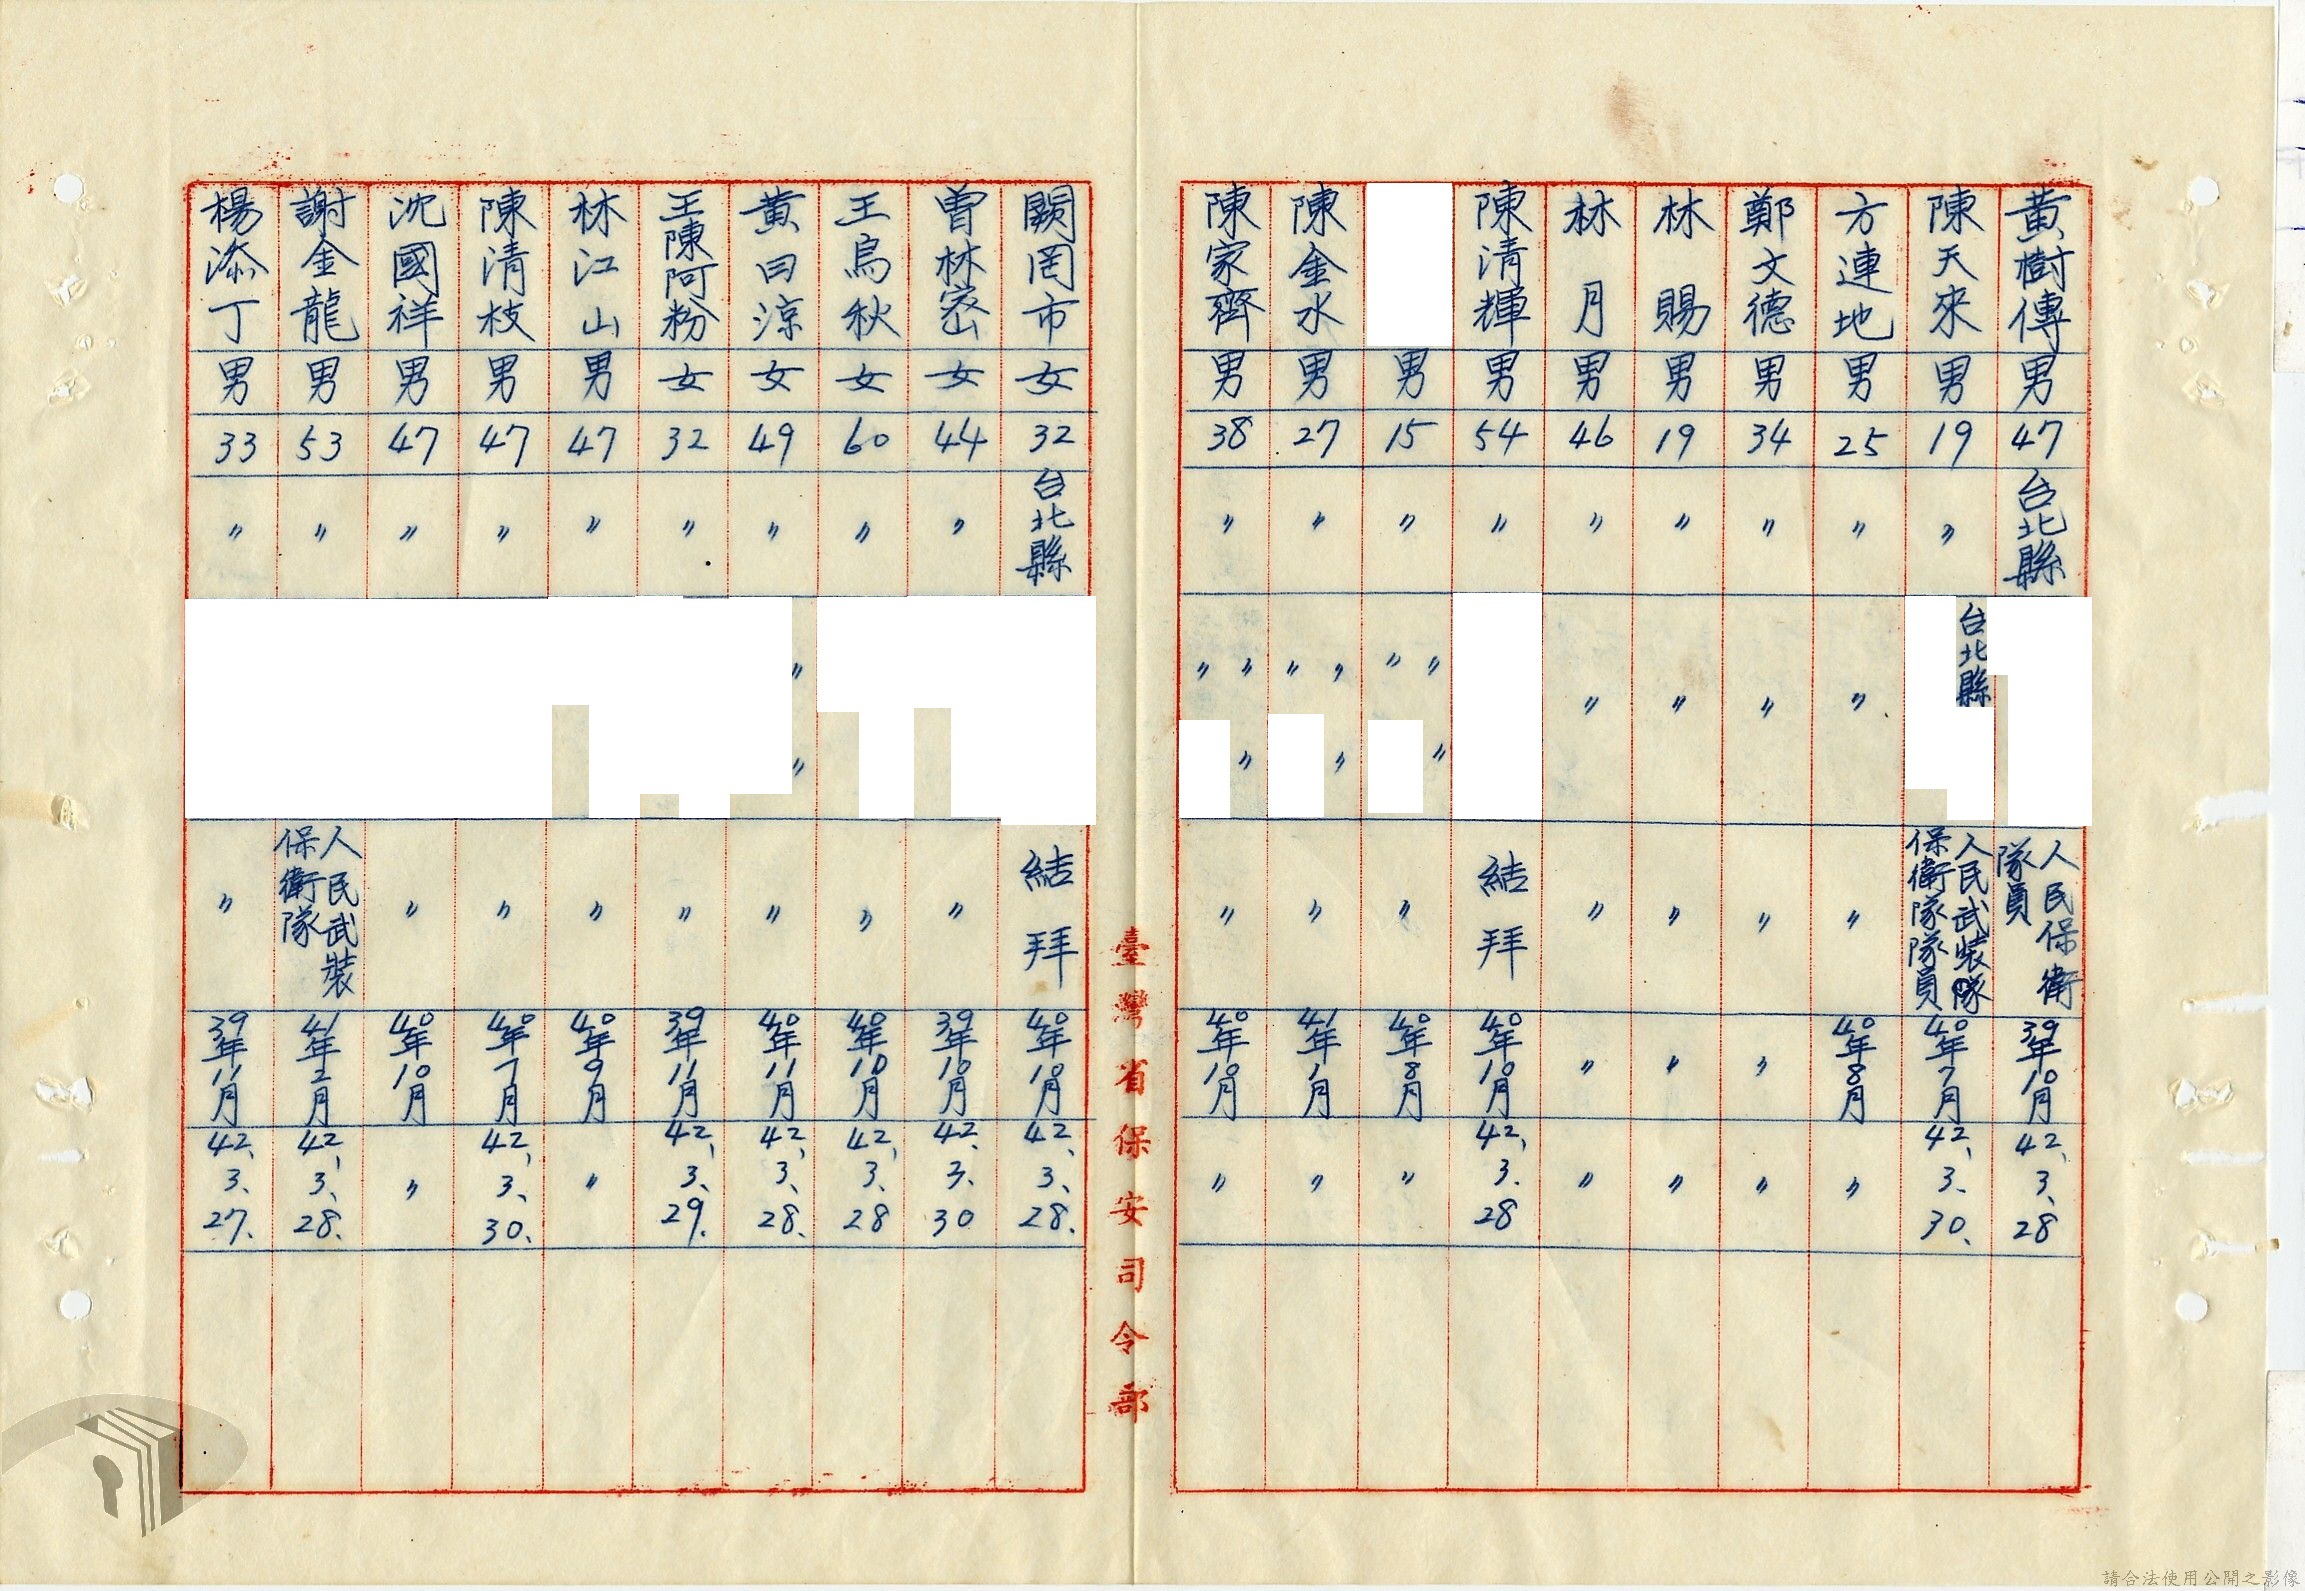 黃樹傳 男 47 台北縣 人民保衛隊員 39年10月 42、3、28
陳天來 男 19 〃 台北縣 人民武裝隊保衛隊隊員 40年7月 42、3、30、
方連地 男 25 〃 〃 〃 40年8月 〃
鄭文德 男 34 〃 〃 〃 〃 〃
林賜 男 19 〃 〃 〃 〃 〃
林月 男 46 〃 〃 〃 〃 〃
陳清輝 男 54 〃 結拜 40年10月 42、3.28
男 15 〃 〃 〃 〃 〃 40年8月 〃
陳金水 男 27 〃 〃 〃 〃 〃 41年1月 〃
陳家齊 男 38 〃 〃 〃 〃 〃 40年10月 〃
臺灣省保安司令部
闕罔市 女 32 台北縣 結拜 40年10月 42、3、28.
曾林密 女 44 〃 〃 39年10月 42.3.30
王烏秋 女 60 〃 〃 40年10月 42、3、28
黃曰涼 女 49 〃 〃 〃 〃 40年11月 42、3、28.
王陳阿粉 女 32 〃 〃 39年11月 42、3、29.
林江山 男 47 〃 〃 40年9月 〃
陳清枝 男 47 〃 〃 40年7月 42、3、30.
沈國祥 男 47 〃 〃 40年10月 〃
謝金龍 男 53 〃 人民武裝保衛隊 41年2月 42、3、28.
楊添丁 男 33 〃 〃 39年11月 42、3、27.
請合法使用公開之影像